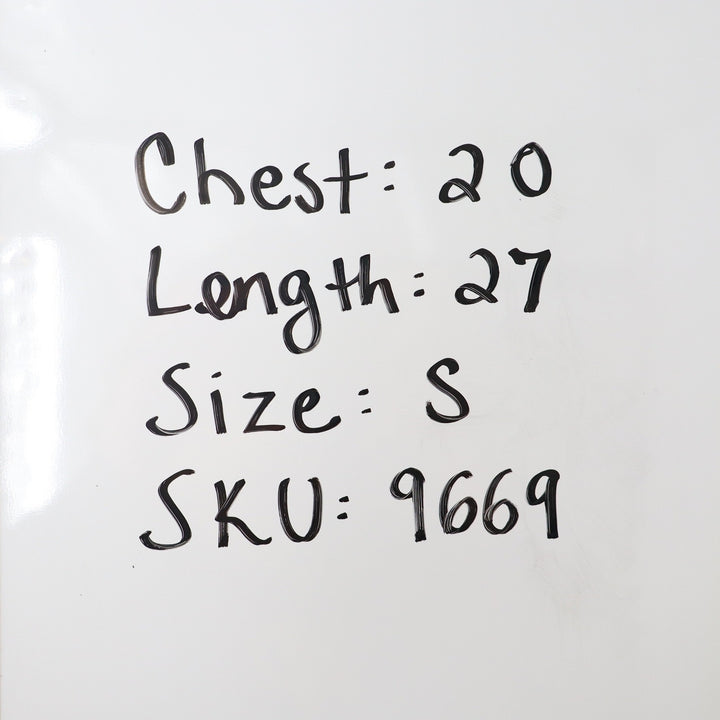 Chest: 20
Length: 27
Size: S
SKU: 9669